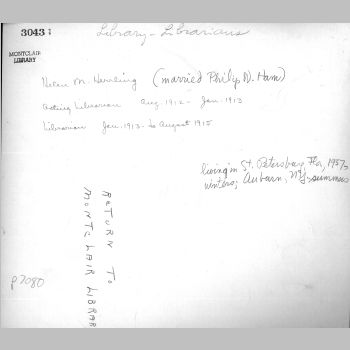 3043
Library - Librarians
MONTCLAIR
LIBRARY
Helen M. (married Philip W. Ham)
Acting Librarian Aug. 1912 - Jan. 1913
Librarian Jan. 1913 - to August 1915
living in St. Petersburg, Fla, 1957,
winters; Auburn, summers
RETURN TO
MONTCLAIR LIBRAR
p7080